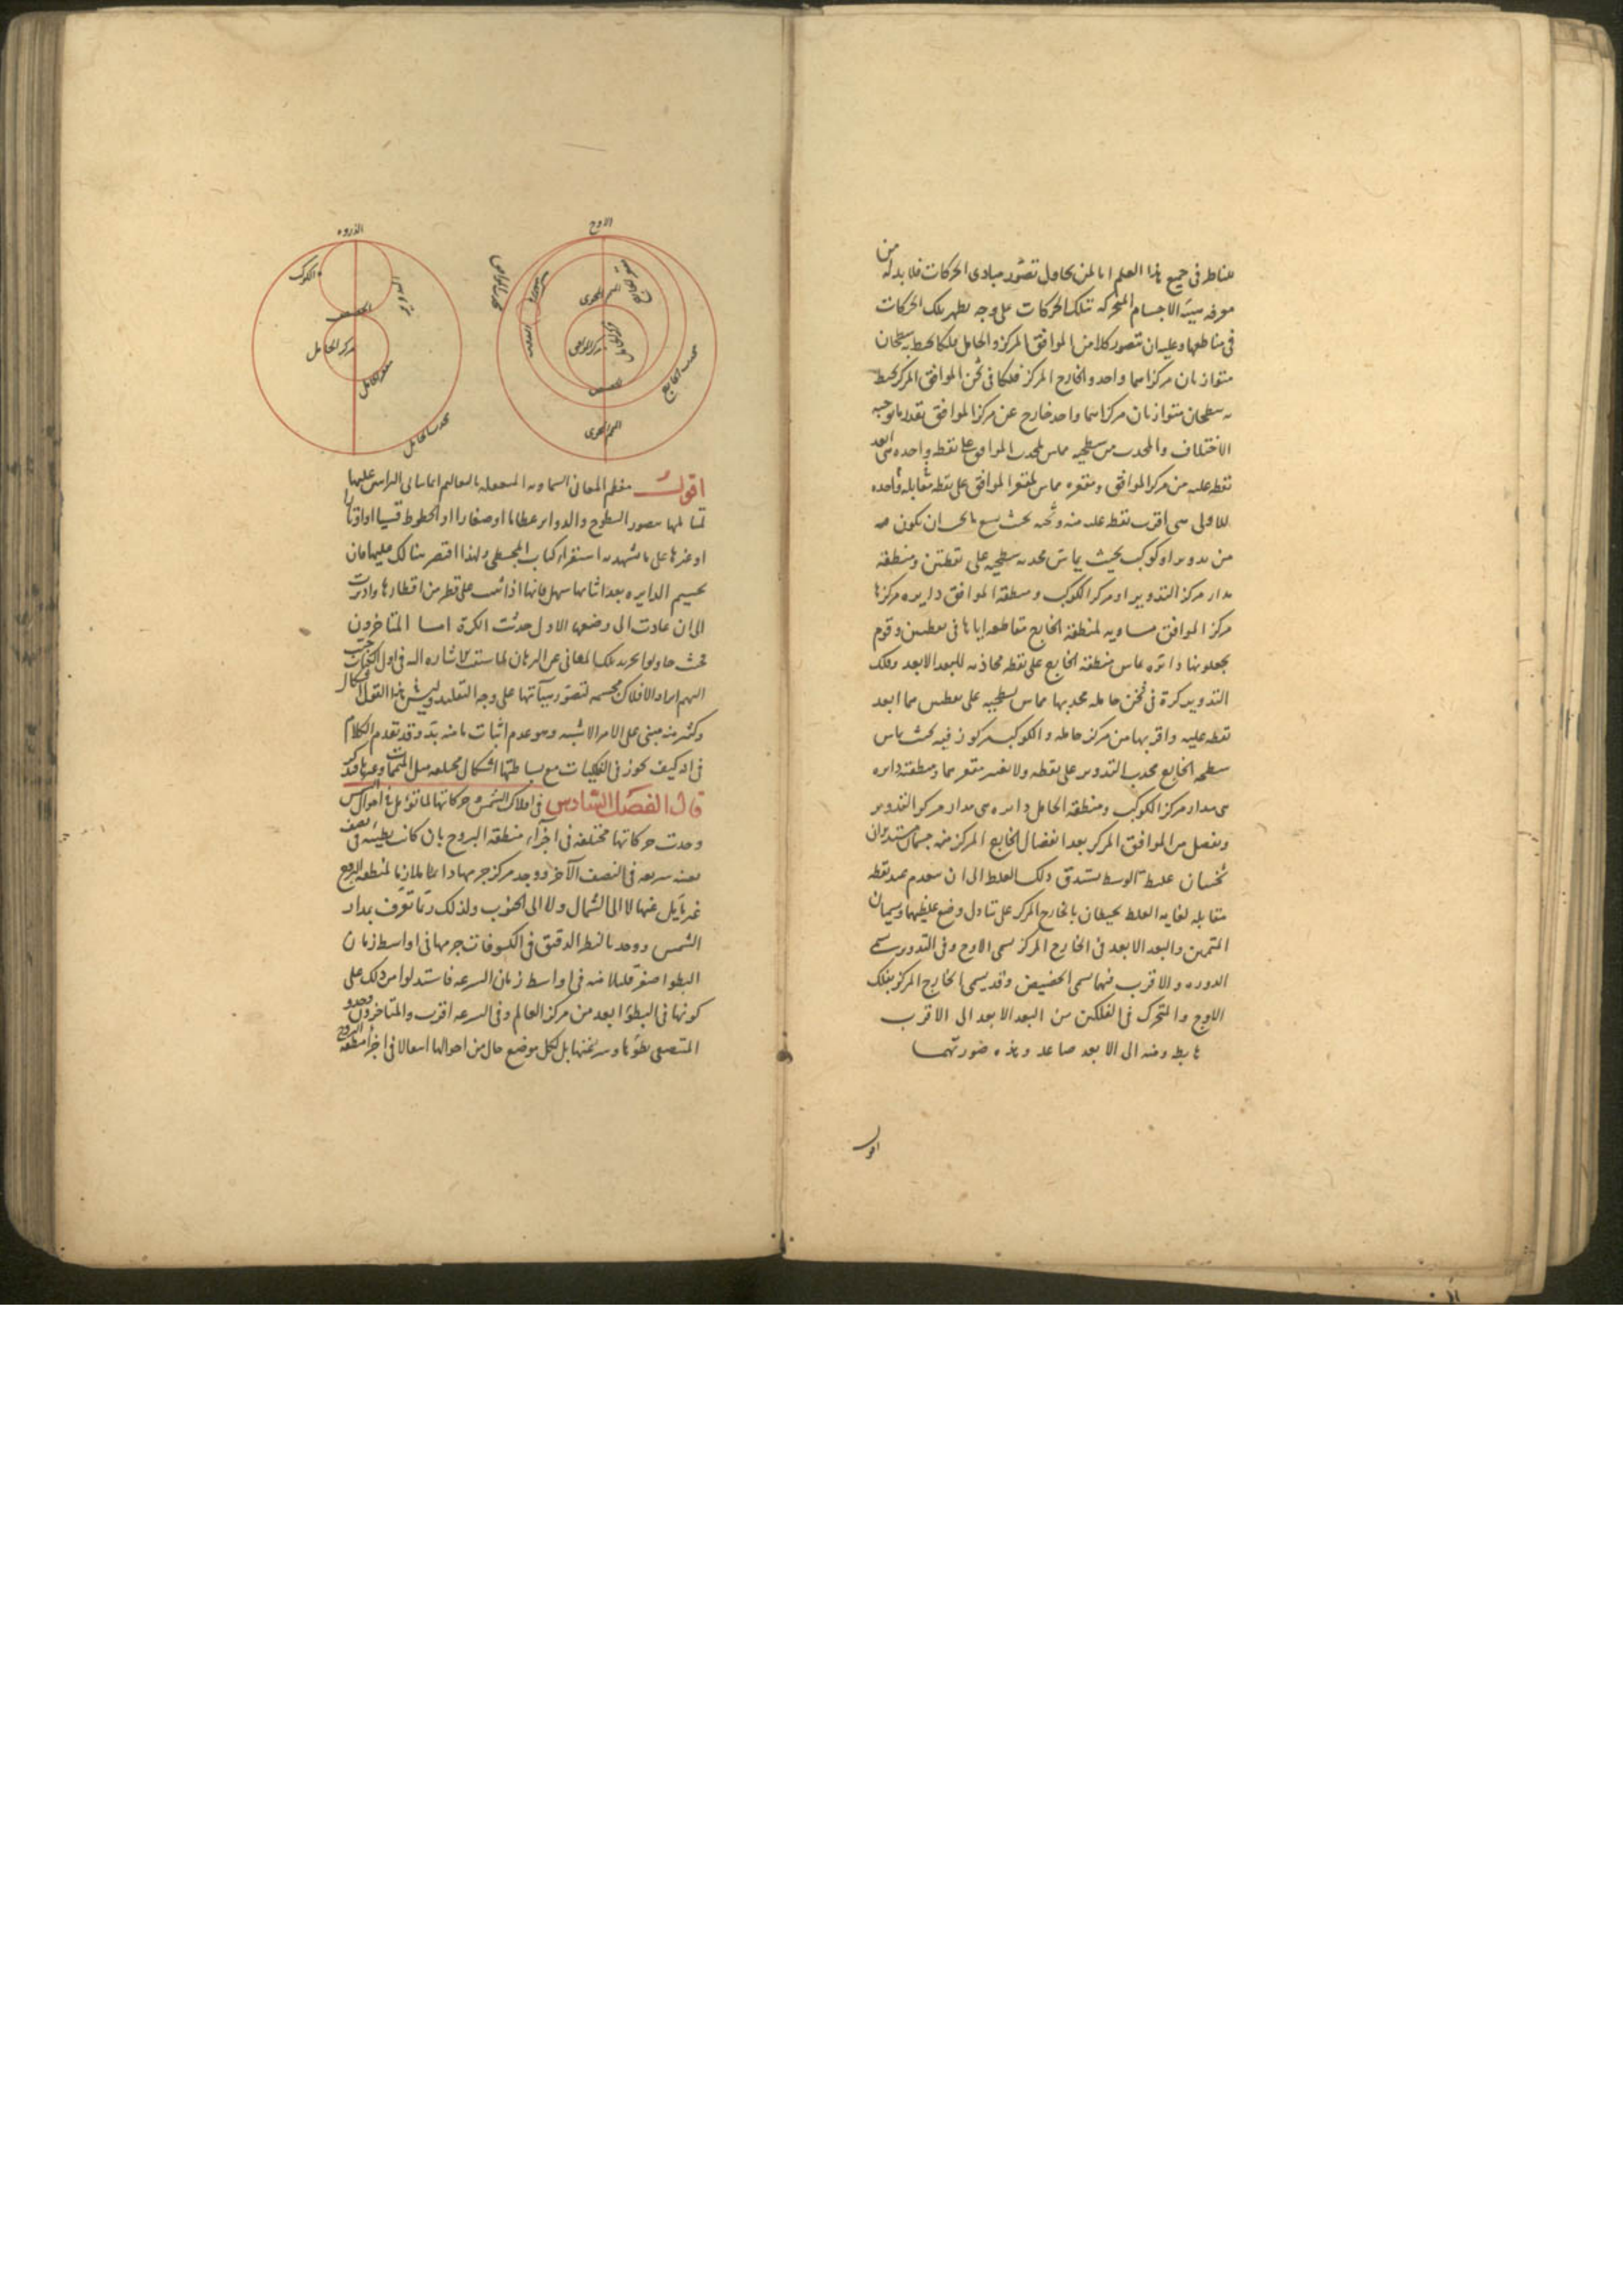 للناظر فى جميع هذا العلم اما لمن يحاول تصور مبادى الحركات فلا بد له من
معرفه هيئة الاجسام المتحركه بتلك الحركات على وجه يظهر تلك الحركات
فى مناطقها وعليه ان يتصور كلا من الموافق المركز والحامل فلكا يحيط به سطحان
متوازيان مركزاهما واحد والخارج المركز فلكا فى ثخن الموافق المركز يحيط
به سطحان متوازيان مركزاهما واحد خارج عن مركز الموافق بقدر ما يوجبه
الاختلاف والمحدب من سطحيه مماس لمحدب الموافق على نقطه واحده هى ابعد
نقطه عليه من مركز الموافق ومقعره مماس لمقعر الموافق على نقطه مقابله
للاولى هى اقرب نقطه عليه منه وثخنه بحيث يسع ما يجب ان يكون فيه
من تدوير او كوكب بحيث يماس محدبه سطحيه على نقطتين ومنطقته
مدار مركز التدوير او مركز الكوكب ومنطقة الموافق دايره مركزها
مركز الموافق مساويه لمنطقة الخارج متقاطعه اياها فى نقطتين وقوم
يجعلونها دائره تماس منطقة الخارج على نقطه محاذيه للبعد الابعد وفلك
التدوير كرة فى ثخن حامله محدبها مماس لسطحيه على نقطتين هما ابعد
نقطه عليه واقربها من مركز حامله والكوكب مركوز فيه بحيث يماس
سطحه الخارج محدب التدوير على نقطه ولا يعتبر مقعرهما ومنطقته دايره
هى مدار مركز الكوكب ومنطقة الحامل دائره هى مدار مركز التدوير
ويفصل من الموافق المركز بعد انفصال الخارج المركز منه جسمان مستديران
ثخينان غليظا الوسط يستدق ذلك الغلظ الى ان ينعدم عند نقطه
مقابله لغايه الغلظ يحيطان بالخارج المركز على تبادل وضع غلظيهما ويسميان
المتممين والبعد الابعد فى الخارج المركز يسمى الاوج وفى التدوير يسمى
الذروه والاقرب فيهما يسمى الحضيض وقد يسمى الخارج المركز بفلك
الاوج والمتحرك فى الفلكين من البعد الابعد الى الاقرب
هابط ومنه الى الابعد صاعد وهذه صورتهما
اقول
الاوج
الذروه
الكوكب
الحضيض
مركز الحامل
مقعر الحامل
محدب الحامل
مركز الموافق
محدب الخارج
الحضيض
اقول معظم المعانى السماويه
تمثالها بتصور السطوح والدواير عظاما او صغارا او الخطوط قسيا او اوتارا
او غيرها على ما يشهد به استقراء كتاب المجسطى ولهذا اقتصر هنالك عليها فان
تجسيم الدايره بعد اثباتها سهل فانها اذا اثبتت على قطر من اقطارها وادبرت
الى ان عادت الى وضعها الاول حدثت الكرة اما المتاخرون
فحيث حاولوا تجريد تلك المعانى عن البرهان لما سبقت الاشاره اليه فى اول الكتاب
ايراد الافلاك مجسمه لتصور هيآتها على وجه التقليد
وكثير منه مبنى على الامر الاشبه وهو عدم اثبات ما منه بد وقد تقدم الكلام
فى انه كيف يجوز فى الفلكيات مع بساطتها اشكال مختلفه مثل المتممات وغيرها
قال الفصل السادس فى افلاك الشمس وحركاتها لما تؤمل فى احوال الشمس
وجدت حركاتها مختلفه فى اجزاء منطقة البروج بان كانت بطيئه فى نصف
بعينه سريعه فى النصف الآخر ووجد مركز جرمها دائما ملازما لمنطقه البروج
غير مايل عنها لا الى الشمال ولا الى الجنوب ولذلك ربما تعرف بمدار
الشمس ووجد بالنظر الدقيق فى الكسوفات جرمها فى اواسط زمان
البطؤ اصغر قليلا منه فى اواسط زمان السرعه فاستدلوا من ذلك على
كونها فى البطؤ ابعد من مركز العالم وفى السرعه اقرب والمتاخرون وجدوا
المنتصفى بطؤها وسرعتها بل لكل موضع حال من احوالها انتقالا فى اجزاء منطقه البروج